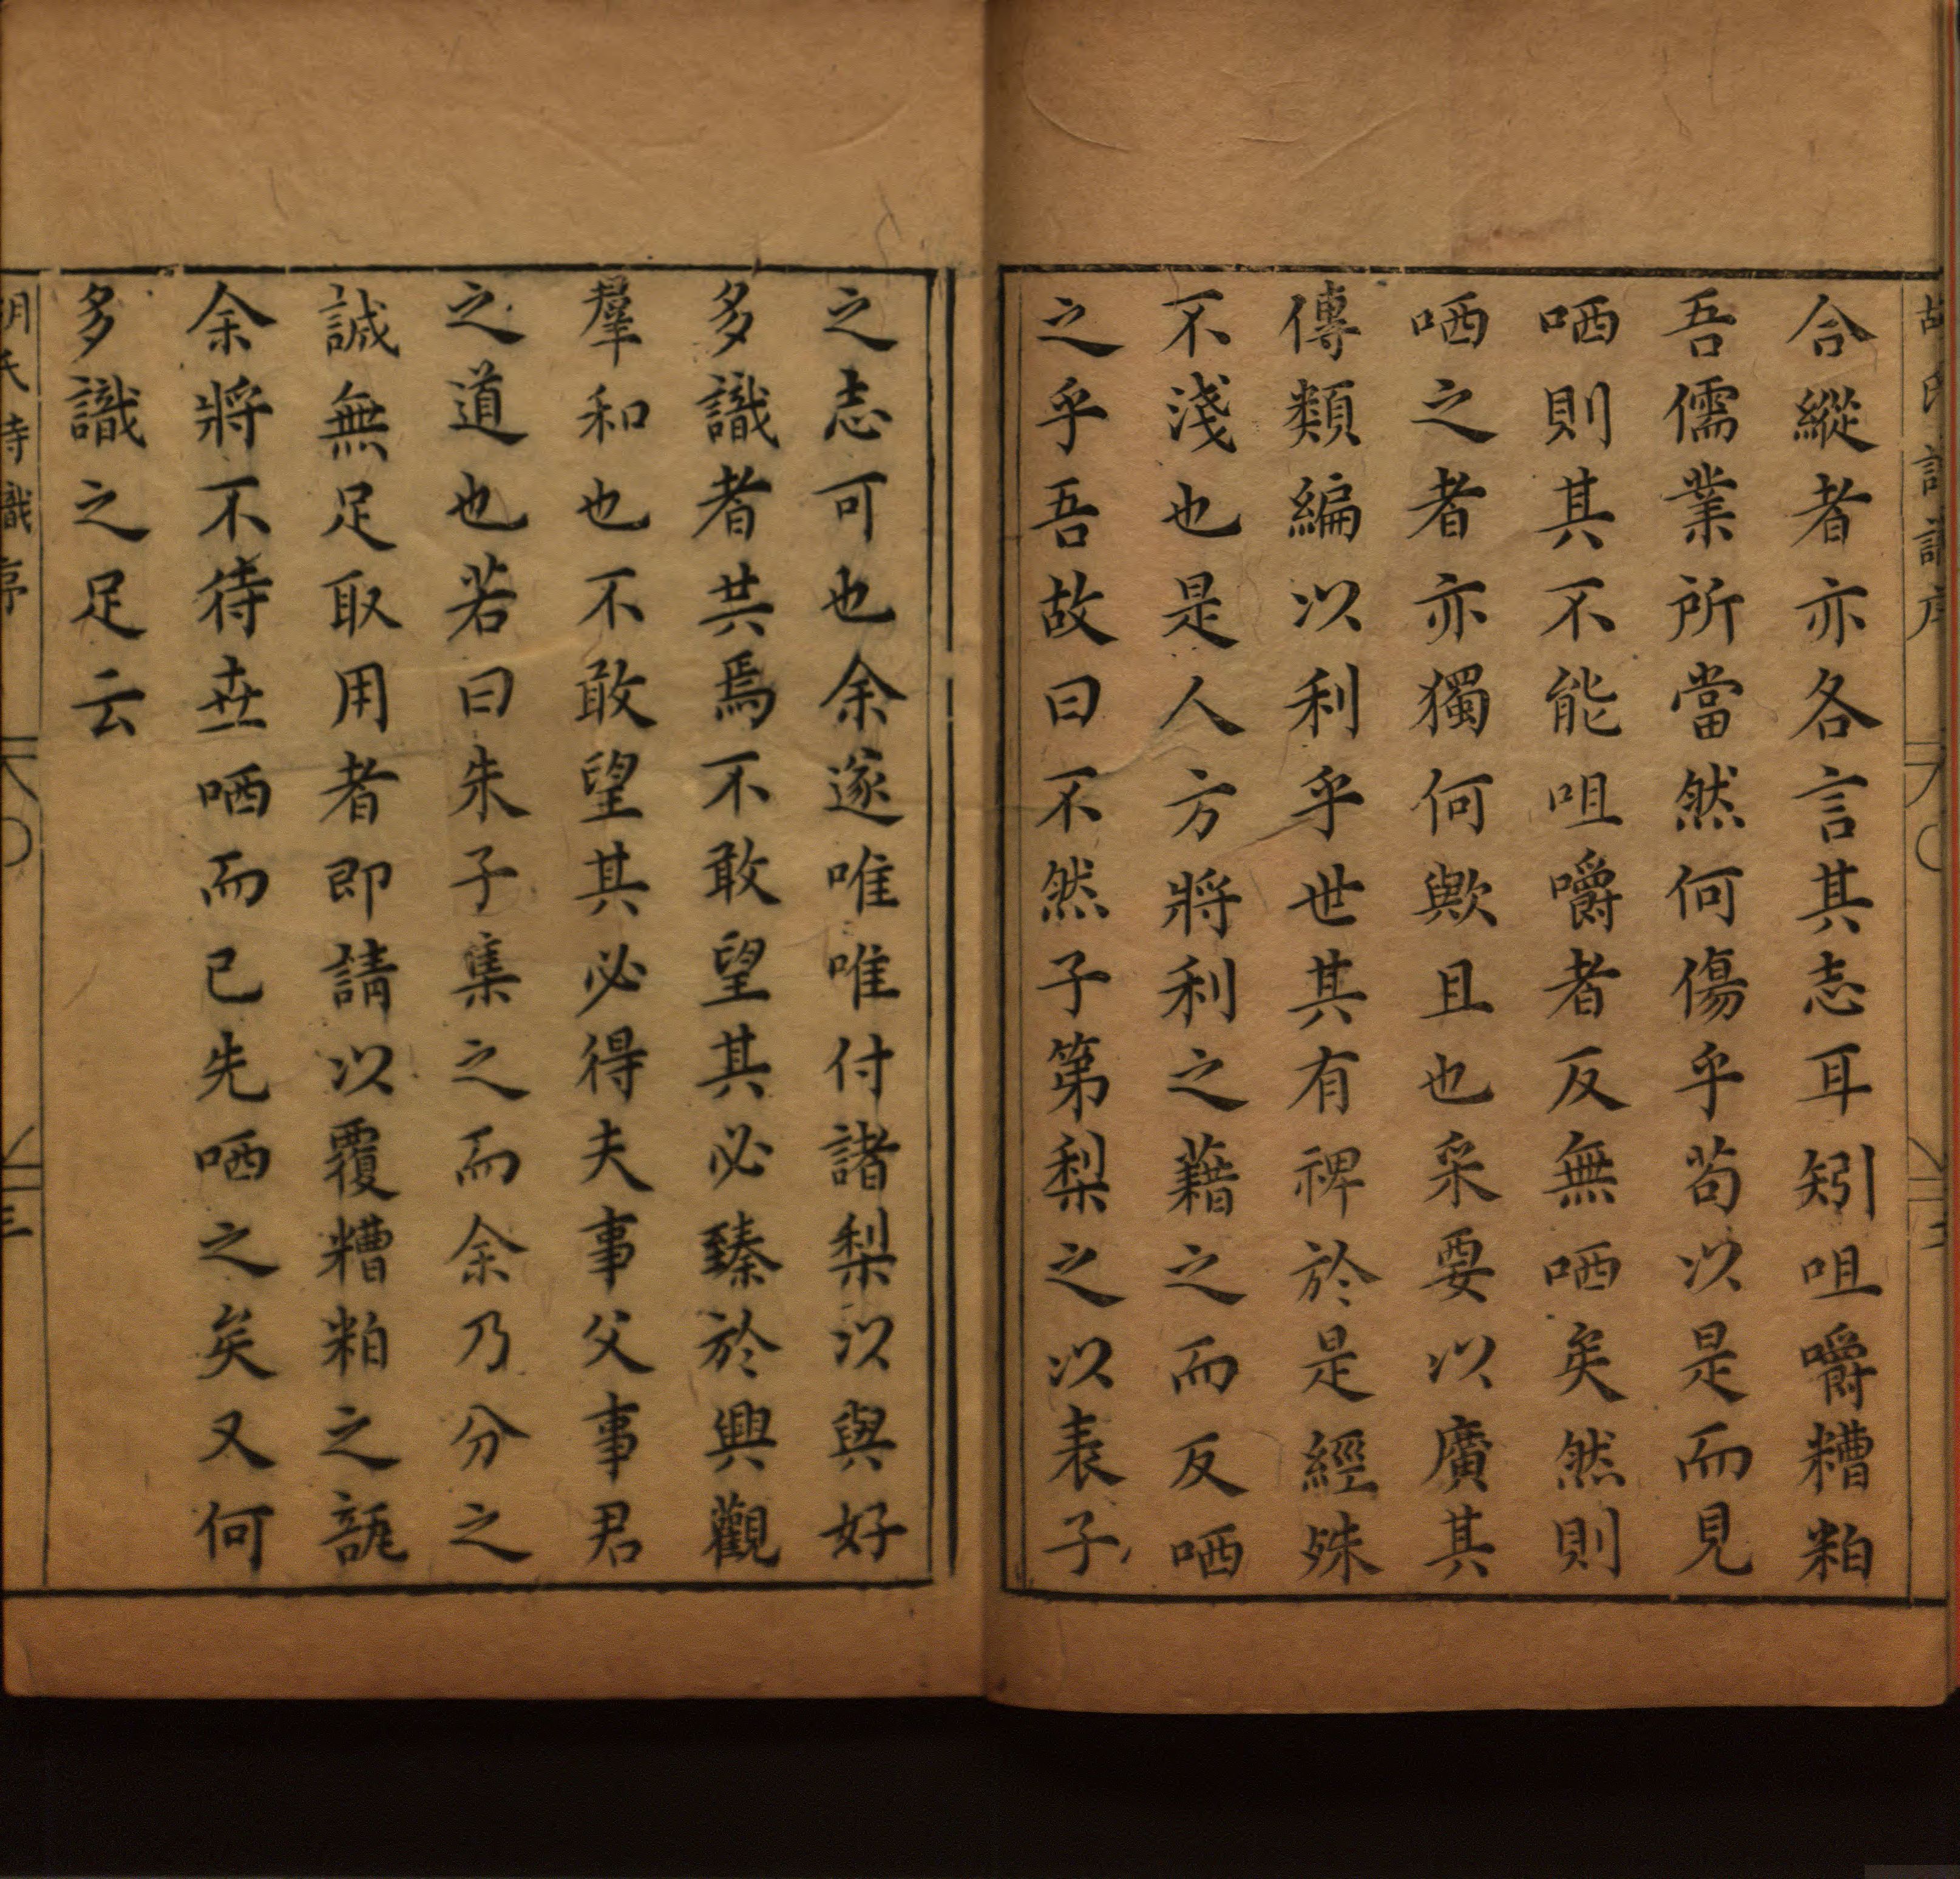 合縱者亦各言其志耳矧咀嚼糟粕
吾儒業所當然何傷乎苟以是而見
哂則其不能咀嚼者反無哂矣然則
哂之者亦獨何歟且也采要以廣其
傳類編以利乎世其有裨於是經殊
不淺也是人方將利之藉之而反哂
之乎吾故曰不然子第梨之以表子
之志可也余遂唯唯付諸梨以與好
多識者共焉不敢望其必臻於興觀
羣和也不敢望其必得夫事父事君
之道也若曰朱子集之而余乃分之
誠無足取用者即請以覆糟粕之瓿
余將不待丗哂而已先哂之矣又何
多識之足云
胡氏詩識序
三